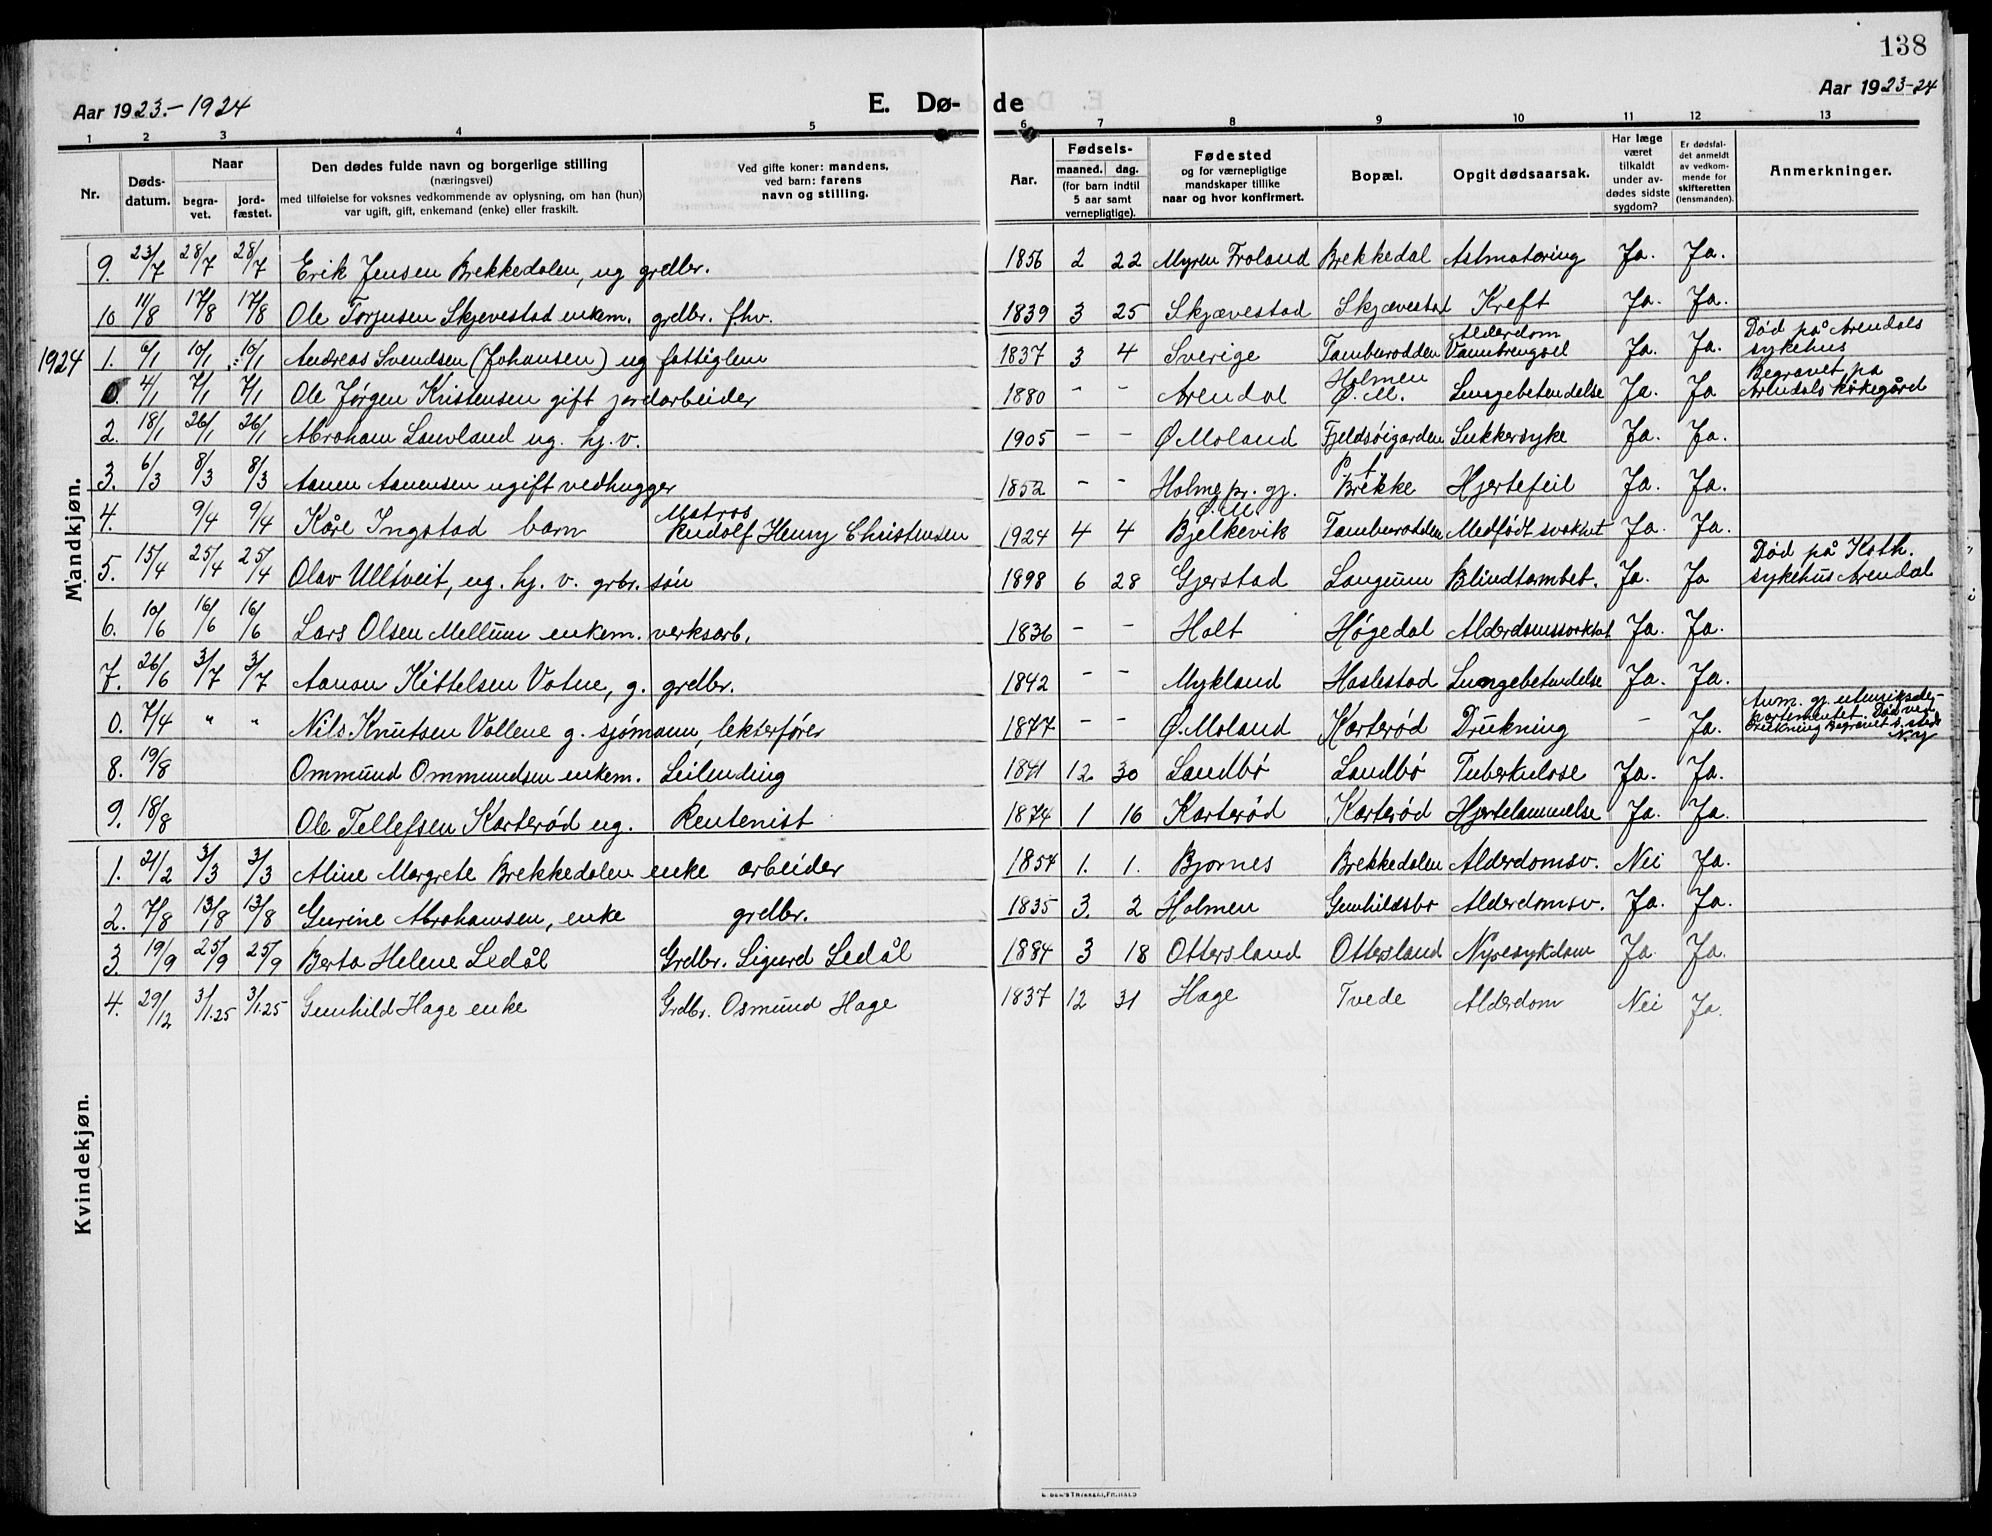 138
Aar 1923.-1924
E. Dø-
de
Aar 1923-24
1 2 3 4 5 6 7 8 9 10 11 12 13
Nr.
Døds-
datum.
Naar
begra-
vet.
jord-
fæstet.
Den dødes fulde navn og borgerlige stilling
(næringsvei)
med tilføielse for voksnes vedkommende av oplysning, om han (hun)
var ugift, gift, enkemand (enke) eller fraskilt.
Ved gifte koner: mandens,
ved barn: farens
navn og stilling.
Aar.
Fødsels-
maaned. dag.
(for barn indtil
5 aar samt
vernepligtige).
Fødested
og for værnepligtige
mandskaper tillike
naar og hvor konfirmert.
Bopæl.
Opgit dødsaarsak.
Har læge
været
tilkaldt
under av-
dødes sidste
sygdom?
Er dødsfal-
det anmeldt
av vedkom-
mende for
skifteretten
(lensmanden).
Anmerkninger.
Mandkjøn.
9. 23/7 28/7 28/7 Erik Jensen Brekkedalen, ug grdbr. 1856 2 22 Myren Froland Brekkedal Astmatæring Ja. Ja.
10 11/8 17/8 17/8 Ole Torjusen Skjevestad enkem. grdbr. f.hv. 1839 3 25 Skjævestad Skjævestad Kreft Ja. Ja.
1924 1. 6/1 10/1 10/1 Andreas Svendsen (Johansen) ug fattiglem 1837 3 4 Sverige Tamburodden Alderdom Ja. Ja. Død på Arendals
sykehus
0. 4/1 7/1 7/1 Ole Jørgen Kristensen gift jordarbeider 1880 - - Arendal Holmen Ø.M. Lungebetendelse Ja. Ja Begravet på
Arendals kirkegård
2. 18/1 26/1 26/1 Abraham Lauvland ug. hj. v. 1905 - - Ø Moland Fjeldsøigarden Sukkersyke Ja. Ja.
3. 6/3 8/3 8/3 Aanen Aanensen ugift vedhugger 1852 - - Holmg pr. gj. Ø.M. Brekke Hjertefeil Ja. Ja.
4. 9/4 9/4 Kåre Ingstad barn Matros
Rudolf Henry Christensen 1924 4 4 Bjelkevik Tamburodden Medfødt svakhet Ja. Ja.
5. 15/4 25/4 25/4 Olav Ulltveit, ug. hj. v. grbr. søn 1898 6 28 Gjerstad Langum Blindtarmbet. Ja. Ja Død på Kath.
sykehus Arendal
6. 10/6 16/6 16/6 Lars Olsen Mellum enkem. verksarb. 1836 - - Holt Høgedal Alderdomssvakhet Ja. Ja.
7. 26/6 3/7 3/7 Aanon Kittelsen Vatne, g. grdbr. 1842 - - Mykland Haslestad Lungebetendelse Ja. Ja.
0. 7/4 " " Nils Knutsen Vollene g. sjømann, lekterfører 1877 - - Ø.Moland Karterød Drukning - Ja. Anm. gj. utenriksde-
partementet. Død ved
Drukning Begravet s. steds
N.y
8. 19/8 Ommund Ommundsen enkem. Leilending 1841 12. 30 Landbø Landbø Tuberkulose Ja. Ja.
9. 18/8 Ole Tellefsen Karterød ug. Rentenist 1874 1 16 Karterød Karterød Hjertelammelse Ja. Ja.
Kvindekjøn.
1. 21/2 3/3 3/3 Aline Margrete Brekkedalen enke arbeider 1854 1. 1. Bjornes Brekkedalen Alderdomsv. Nei Ja.
2. 7/8 13/8 13/8 Gurine Abrahamsen, enke grdbr. 1835 3. 2 Holmen Gunhildsbo Alderdomsv. Ja. Ja.
3. 19/9 25/9 25/9 Berta Helene Ledål Grdbr. Sigurd Ledål 1884 3 18 Ottersland Ottersland Nyresykdom Ja. Ja.
4. 29/12 3/1.25 3/1.25 Gunhild Hage enke Grdbr. Osmund Hage 1837 12 31 Hage Tvede Alderdom Nei Ja.